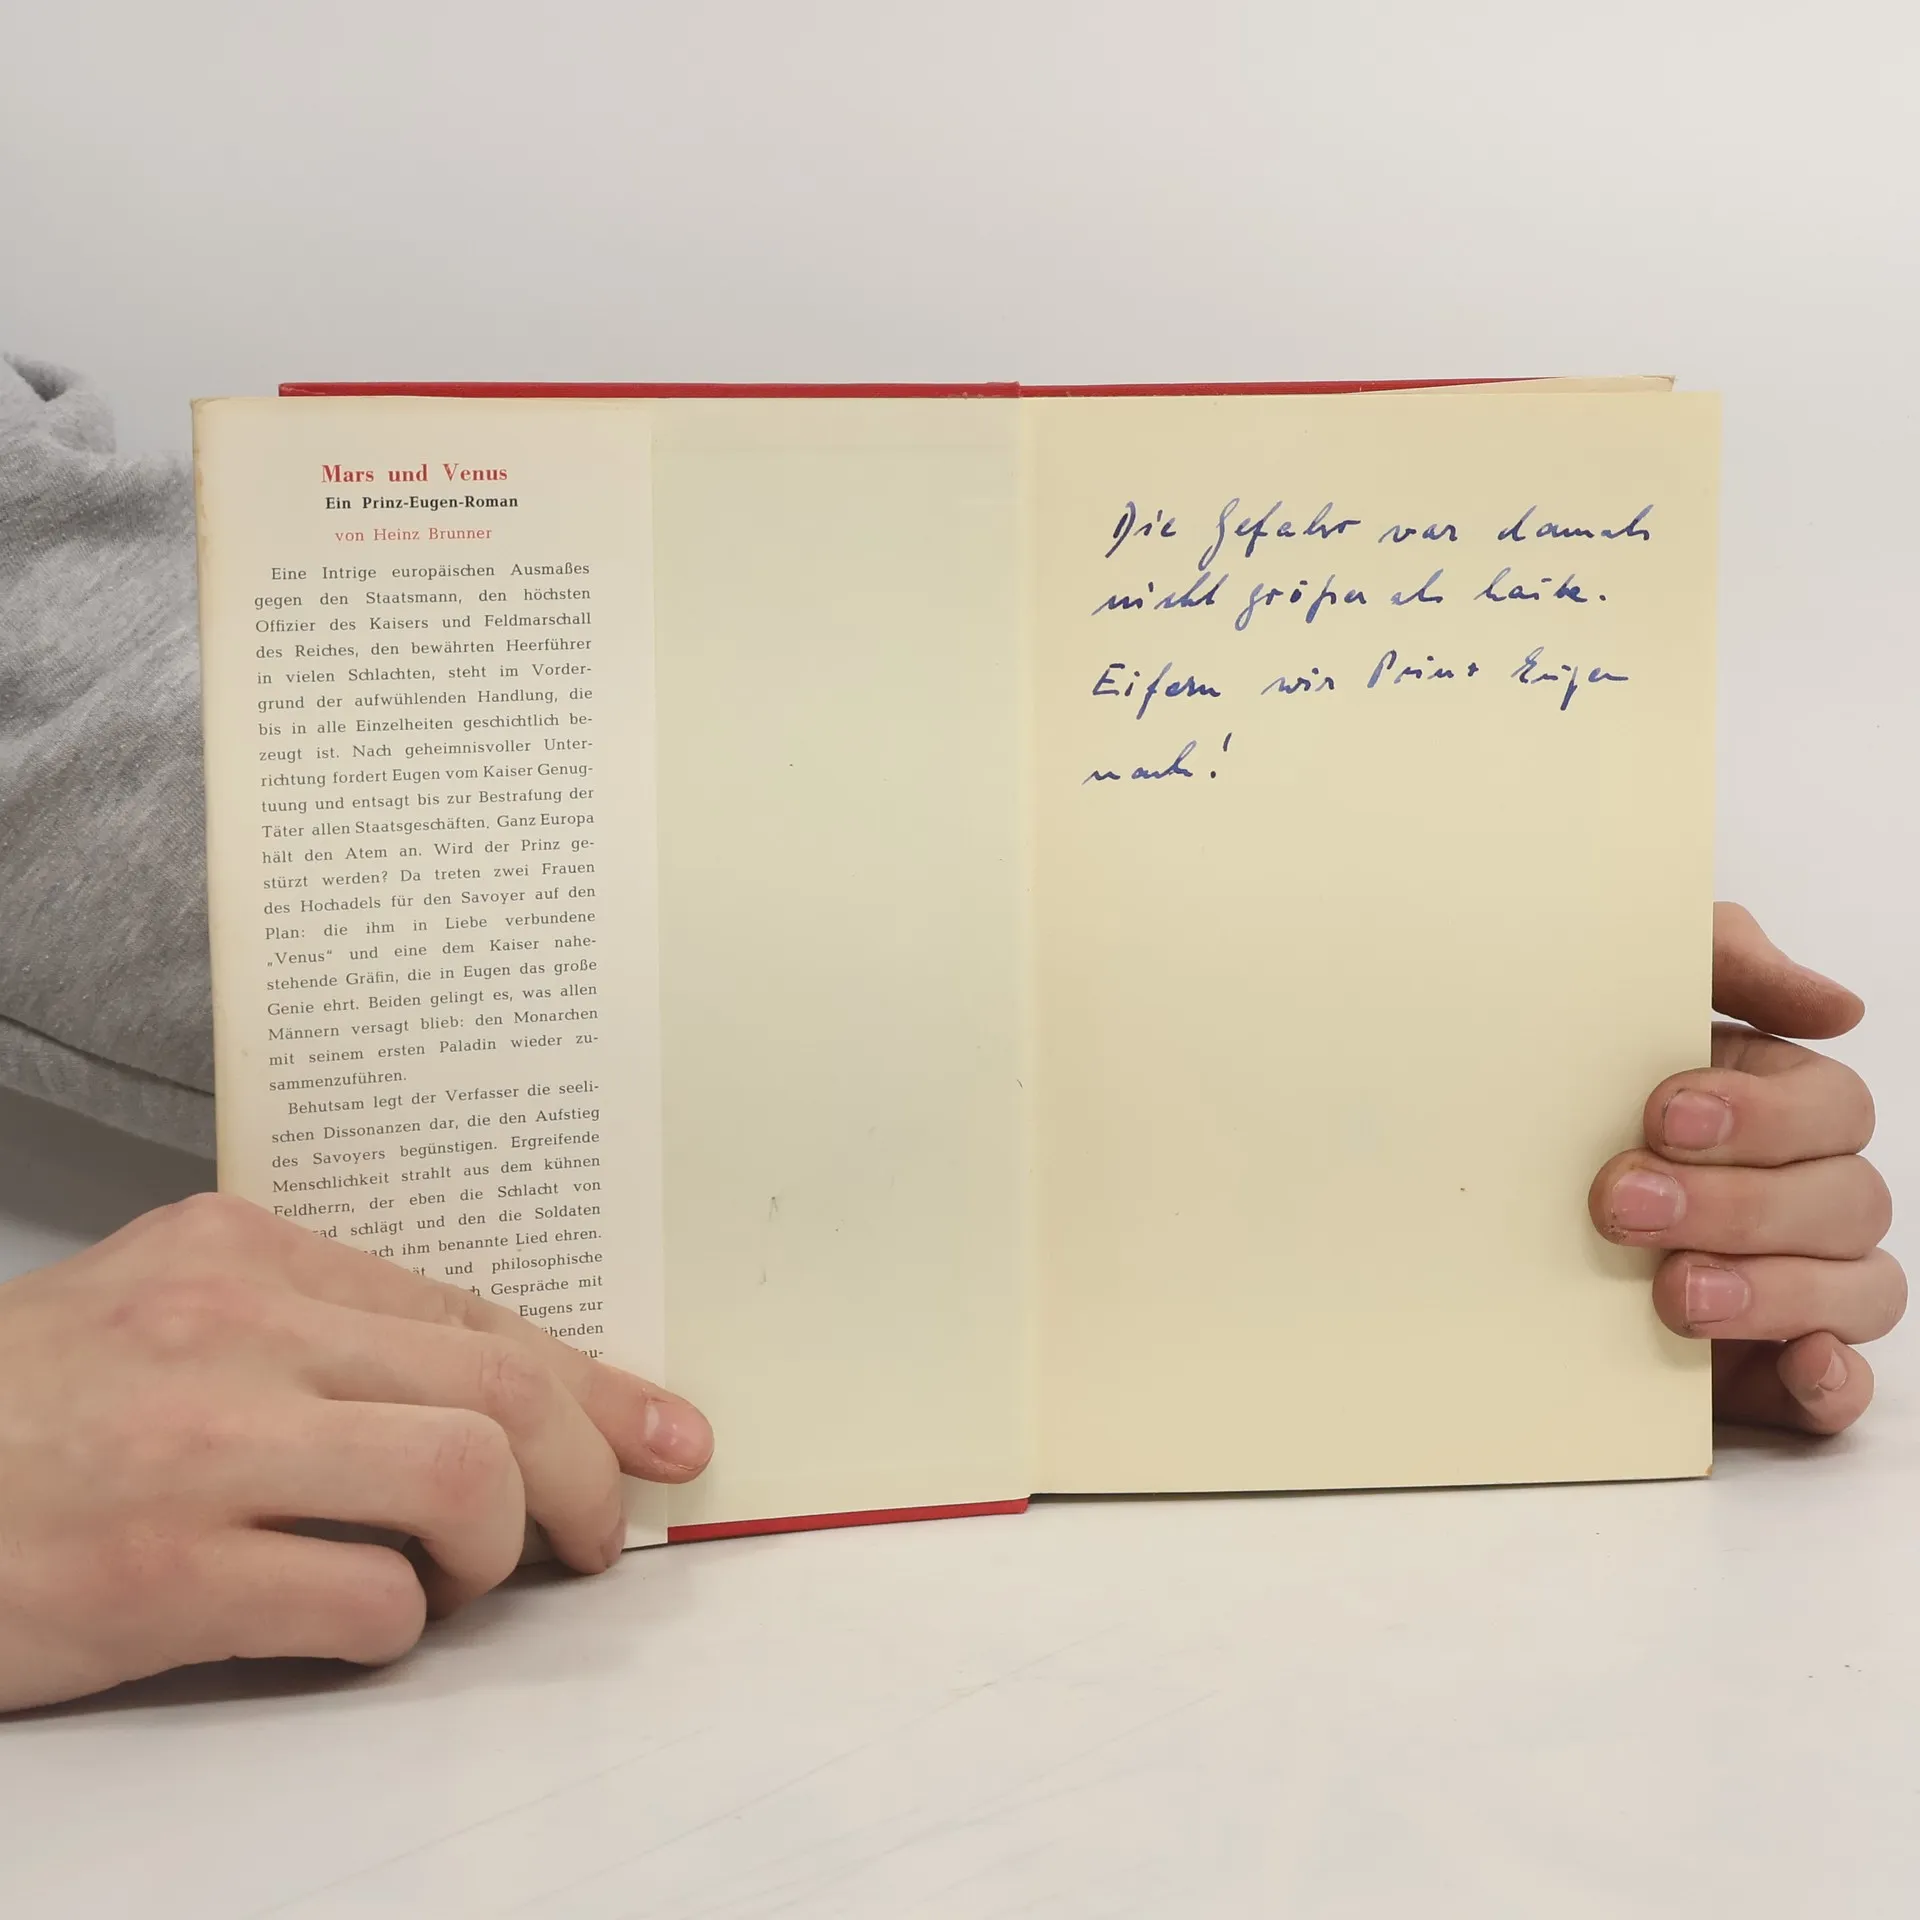 Mars und Venus
Ein Prinz-Eugen-Roman
von Heinz Brunner
Eine Intrige europäischen Ausmaßes
gegen den Staatsmann, den höchsten
Offizier des Kaisers und Feldmarschall
des Reiches, den bewährten Heerführer
in vielen Schlachten, steht im Vorder-
grund der aufwühlenden Handlung, die
bis in alle Einzelheiten geschichtlich be-
zeugt ist. Nach geheimnisvoller Unter-
richtung fordert Eugen vom Kaiser Genug-
tuung und entsagt bis zur Bestrafung der
Täter allen Staatsgeschäften. Ganz Europa
hält den Atem an. Wird der Prinz ge-
stürzt werden? Da treten zwei Frauen
des Hochadels für den Savoyer auf den
Plan: die ihm in Liebe verbundene
„Venus“ und eine dem Kaiser nahe-
stehende Gräfin, die in Eugen das große
Genie ehrt. Beiden gelingt es, was allen
Männern versagt blieb: den Monarchen
mit seinem ersten Paladin wieder zu-
sammenzuführen.
Behutsam legt der Verfasser die seeli-
schen Dissonanzen dar, die den Aufstieg
des Savoyers begünstigen. Ergreifende
Menschlichkeit strahlt aus dem kühnen
Feldherrn, der eben die Schlacht von
schlägt und den die Soldaten
ihm benannte Lied ehren.
und philosophische
Gespräche mit
Eugens zur
Die Gefahr war damals
nicht größer als heute.
Eifern wir Prinz Eugen
nach!